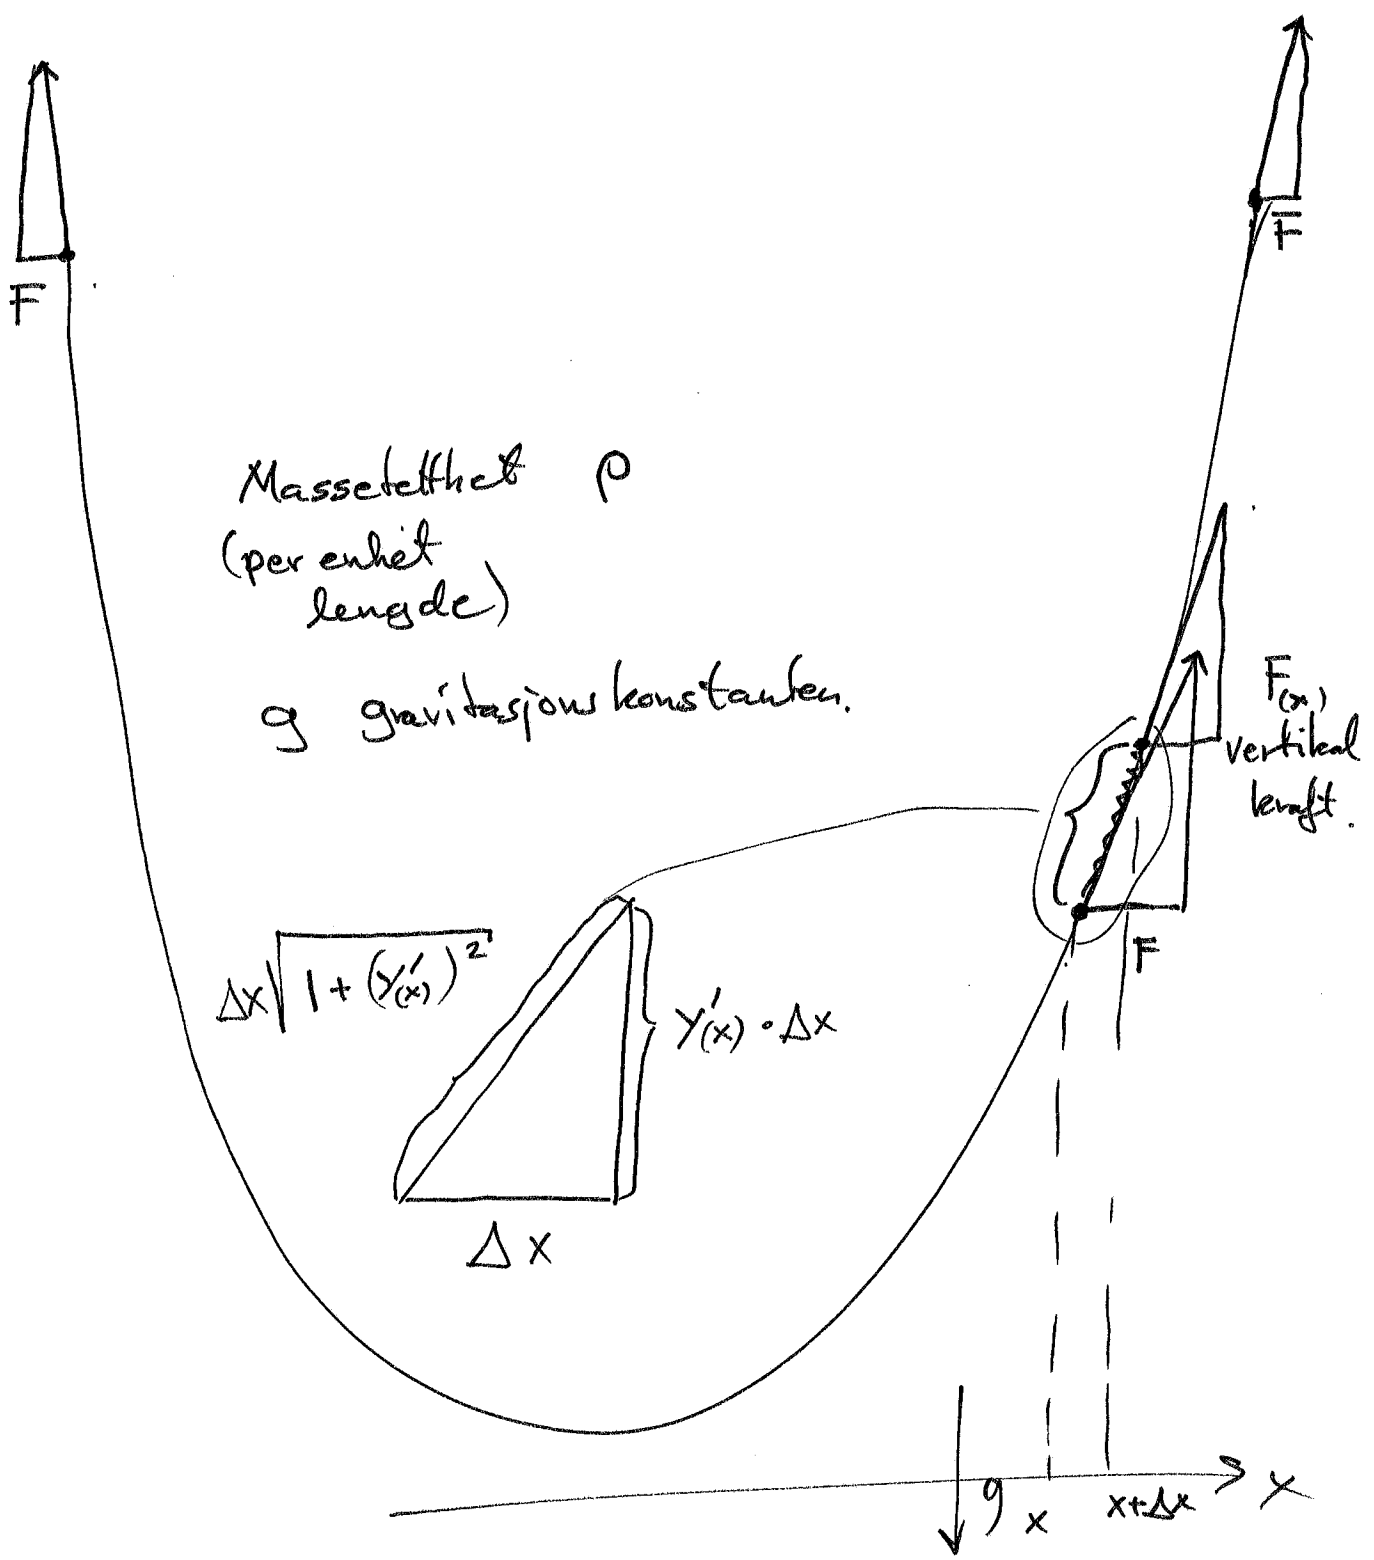 F
F
Massetetthet ρ
(per enhet
lengde)
g gravitasjonskonstanten.
F(x)
vertikal
kraft.
F
Δx√1+(y'(x))²
y'(x) · Δx
Δx
g
x
x+Δx
x